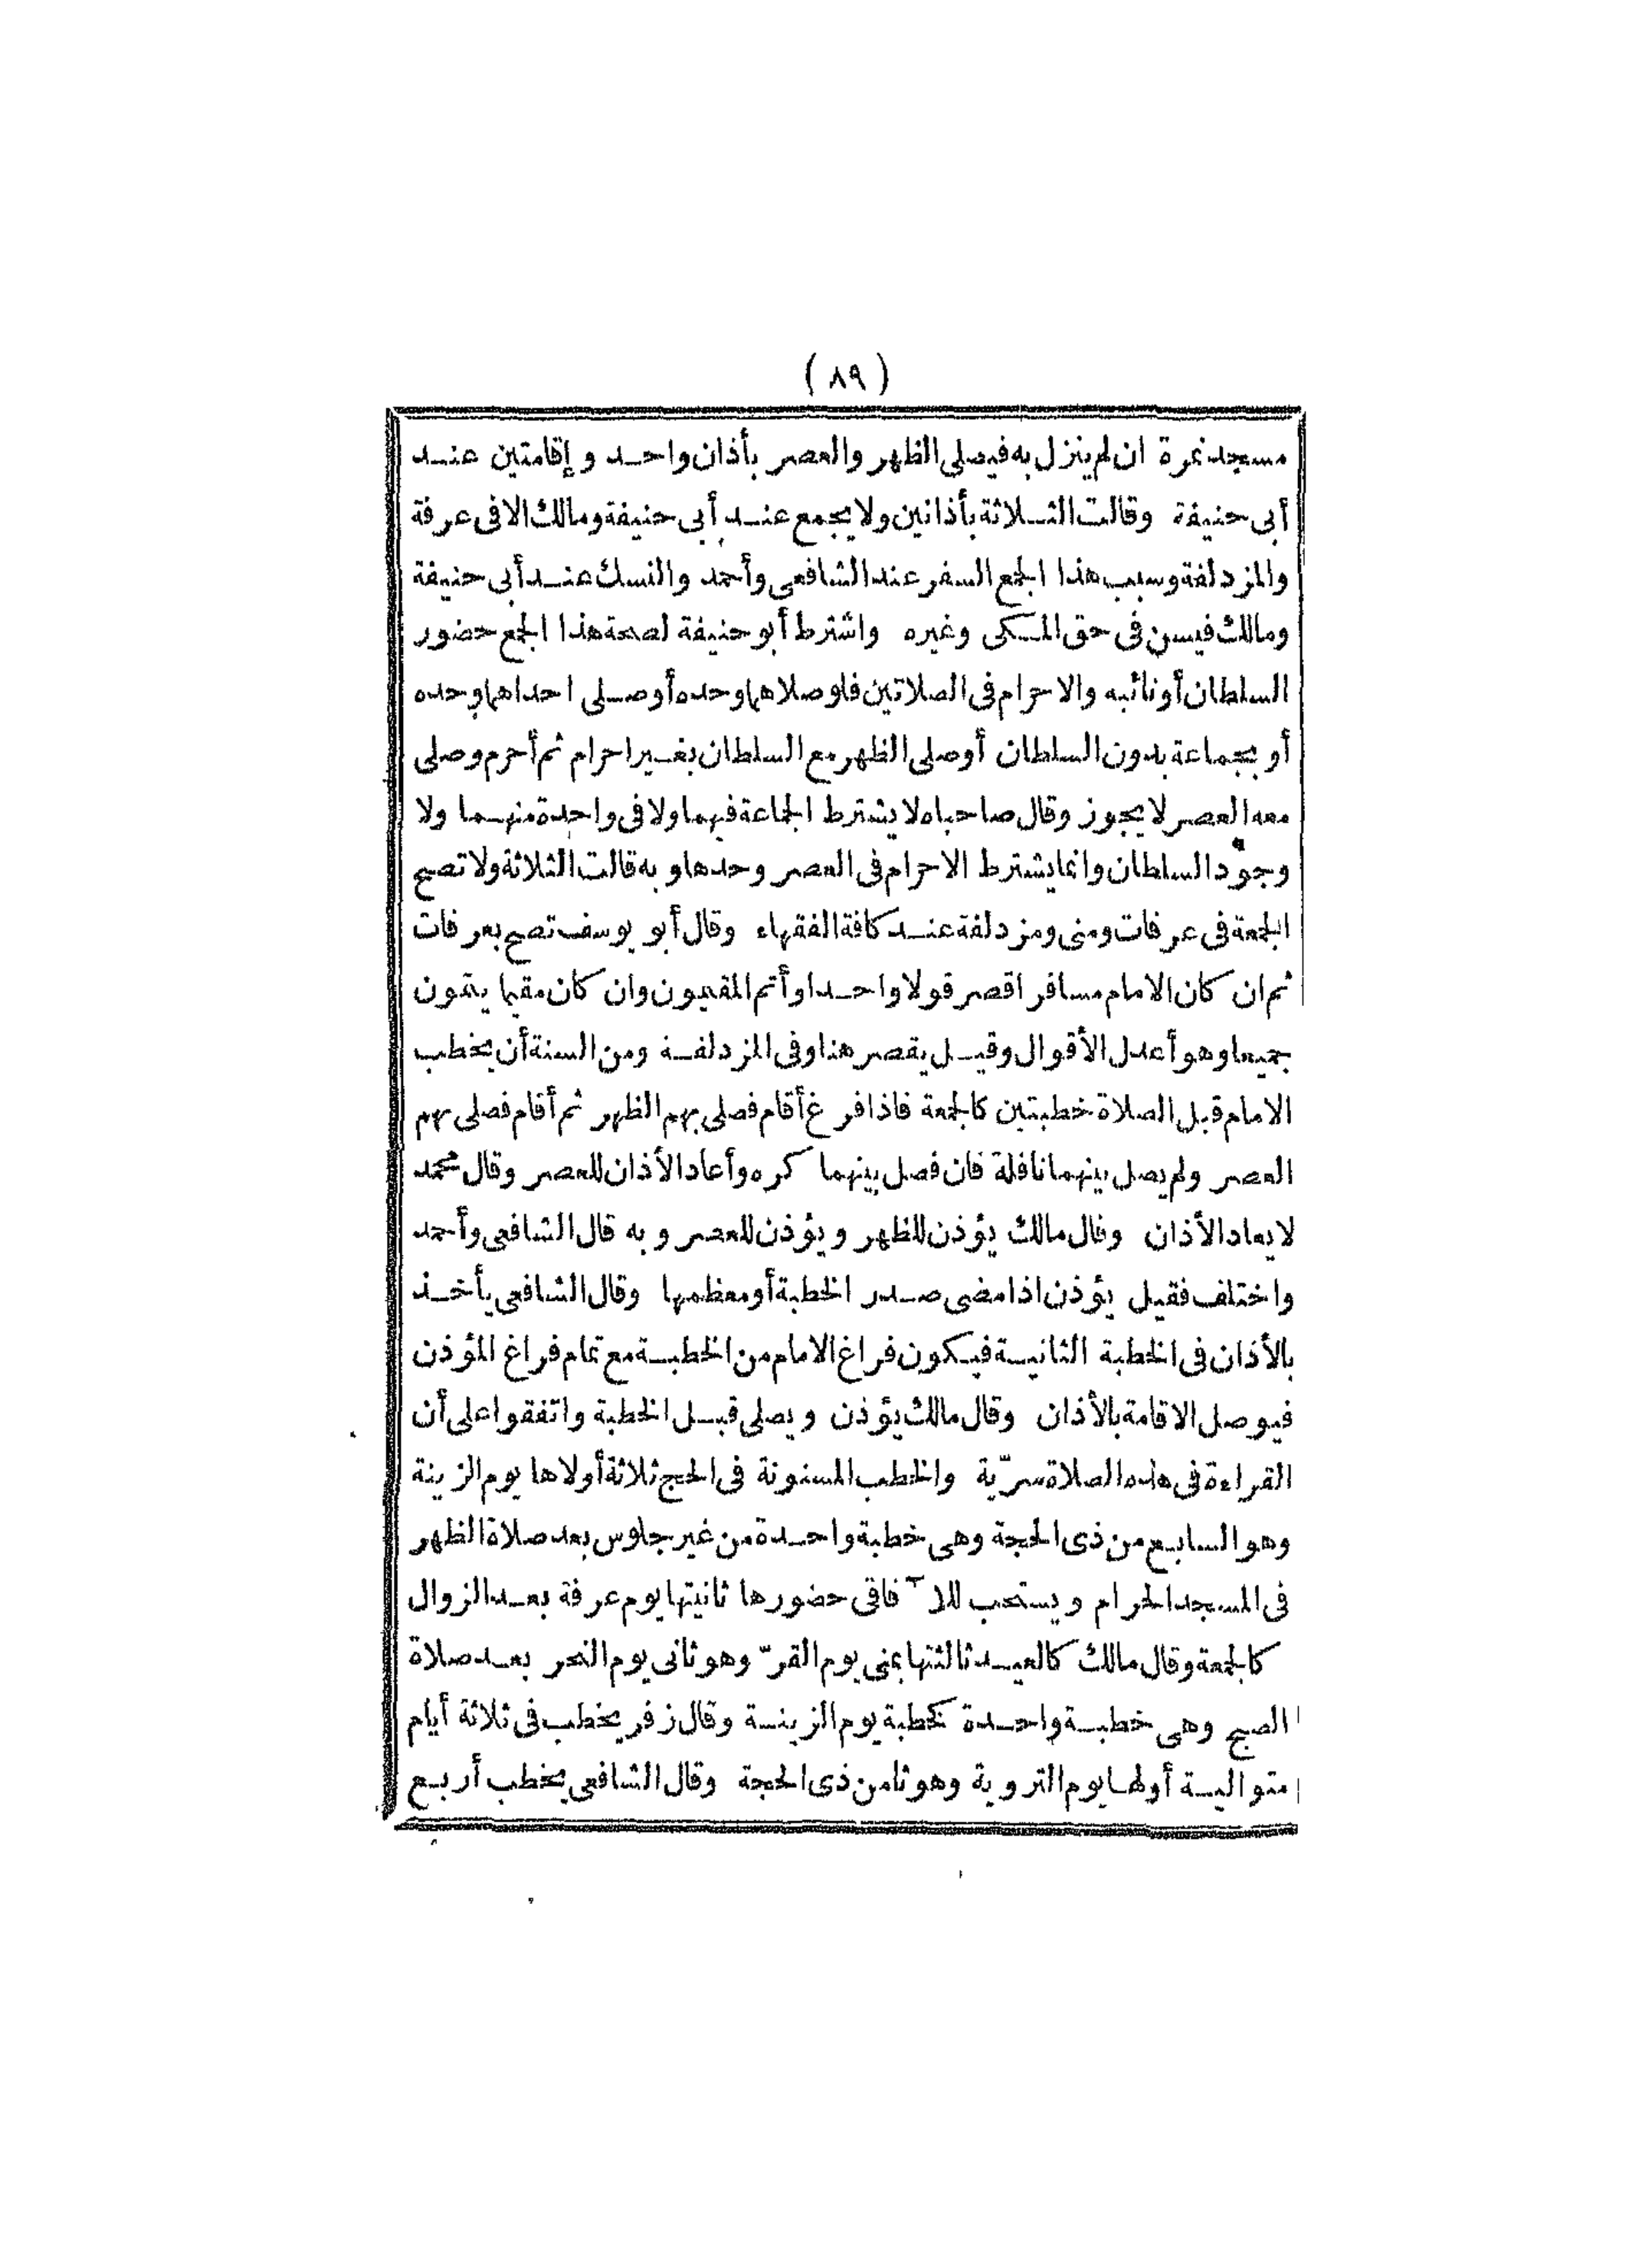 (٨٩)
مسجد نمرة ان لم ينزل به فيصلى الظهر والعصر بأذان واحد وإقامتين عند
أبى حنيفة وقالت الثلاثة بأذانين ولا يجمع عند أبى حنيفة ومالك الا فى عرفة
والمزدلفة وسبب هذا الجمع السفر عند الشافعى وأحمد والنسك عند أبى حنيفة
ومالك فيسن فى حق المكى وغيره واشترط أبو حنيفة لصحة هذا الجمع حضور
السلطان أو نائبه والاحرام فى الصلاتين فلو صلاهما وحده أو صلى احداهما وحده
أو بجماعة بدون السلطان أو صلى الظهر مع السلطان بغير احرام ثم أحرم وصلى
معه العصر لا يجوز وقال صاحباه لا يشترط الجماعة فيهما ولا فى واحدة منهما ولا
وجود السلطان وانما يشترط الاحرام فى العصر وحدها وبه قالت الثلاثة ولا تصح
الجمعة فى عرفات ومنى ومزدلفة عند كافة الفقهاء وقال أبو يوسف تصح بعرفات
ثم ان كان الامام مسافرا قصر قولا واحدا وأتم المقيمون وان كان مقيما يتمون
جميعا وهو أعدل الأقوال وقيل يقصر هنا وفى المزدلفة ومن السنة أن يخطب
الامام قبل الصلاة خطبتين كالجمعة فاذا فرغ أقام فصلى بهم الظهر ثم أقام فصلى بهم
العصر ولم يصل بينهما نافلة فان فصل بينهما كره وأعاد الأذان للعصر وقال محمد
لا يعاد الأذان وقال مالك يؤذن للظهر ويؤذن للعصر وبه قال الشافعى وأحمد
واختلف فقيل يؤذن اذا مضى صدر الخطبة أو معظمها وقال الشافعى يأخذ
بالأذان فى الخطبة الثانية فيكون فراغ الامام من الخطبة مع تمام فراغ المؤذن
فيوصل الاقامة بالأذان وقال مالك يؤذن ويصلى قبل الخطبة واتفقوا على أن
القراءة فى هذه الصلاة سرّية والخطب المسنونة فى الحج ثلاثة أولاها يوم الزينة
وهو السابع من ذى الحجة وهى خطبة واحدة من غير جلوس بعد صلاة الظهر
فى المسجد الحرام ويستحب للآفاقى حضورها ثانيتها يوم عرفة بعد الزوال
كالجمعة وقال مالك كالعيد ثالثتها بمنى يوم القرّ وهو ثانى يوم النحر بعد صلاة
الصبح وهى خطبة واحدة كخطبة يوم الزينة وقال زفر يخطب فى ثلاثة أيام
متوالية أولها يوم التروية وهو ثامن ذى الحجة وقال الشافعى يخطب أربع